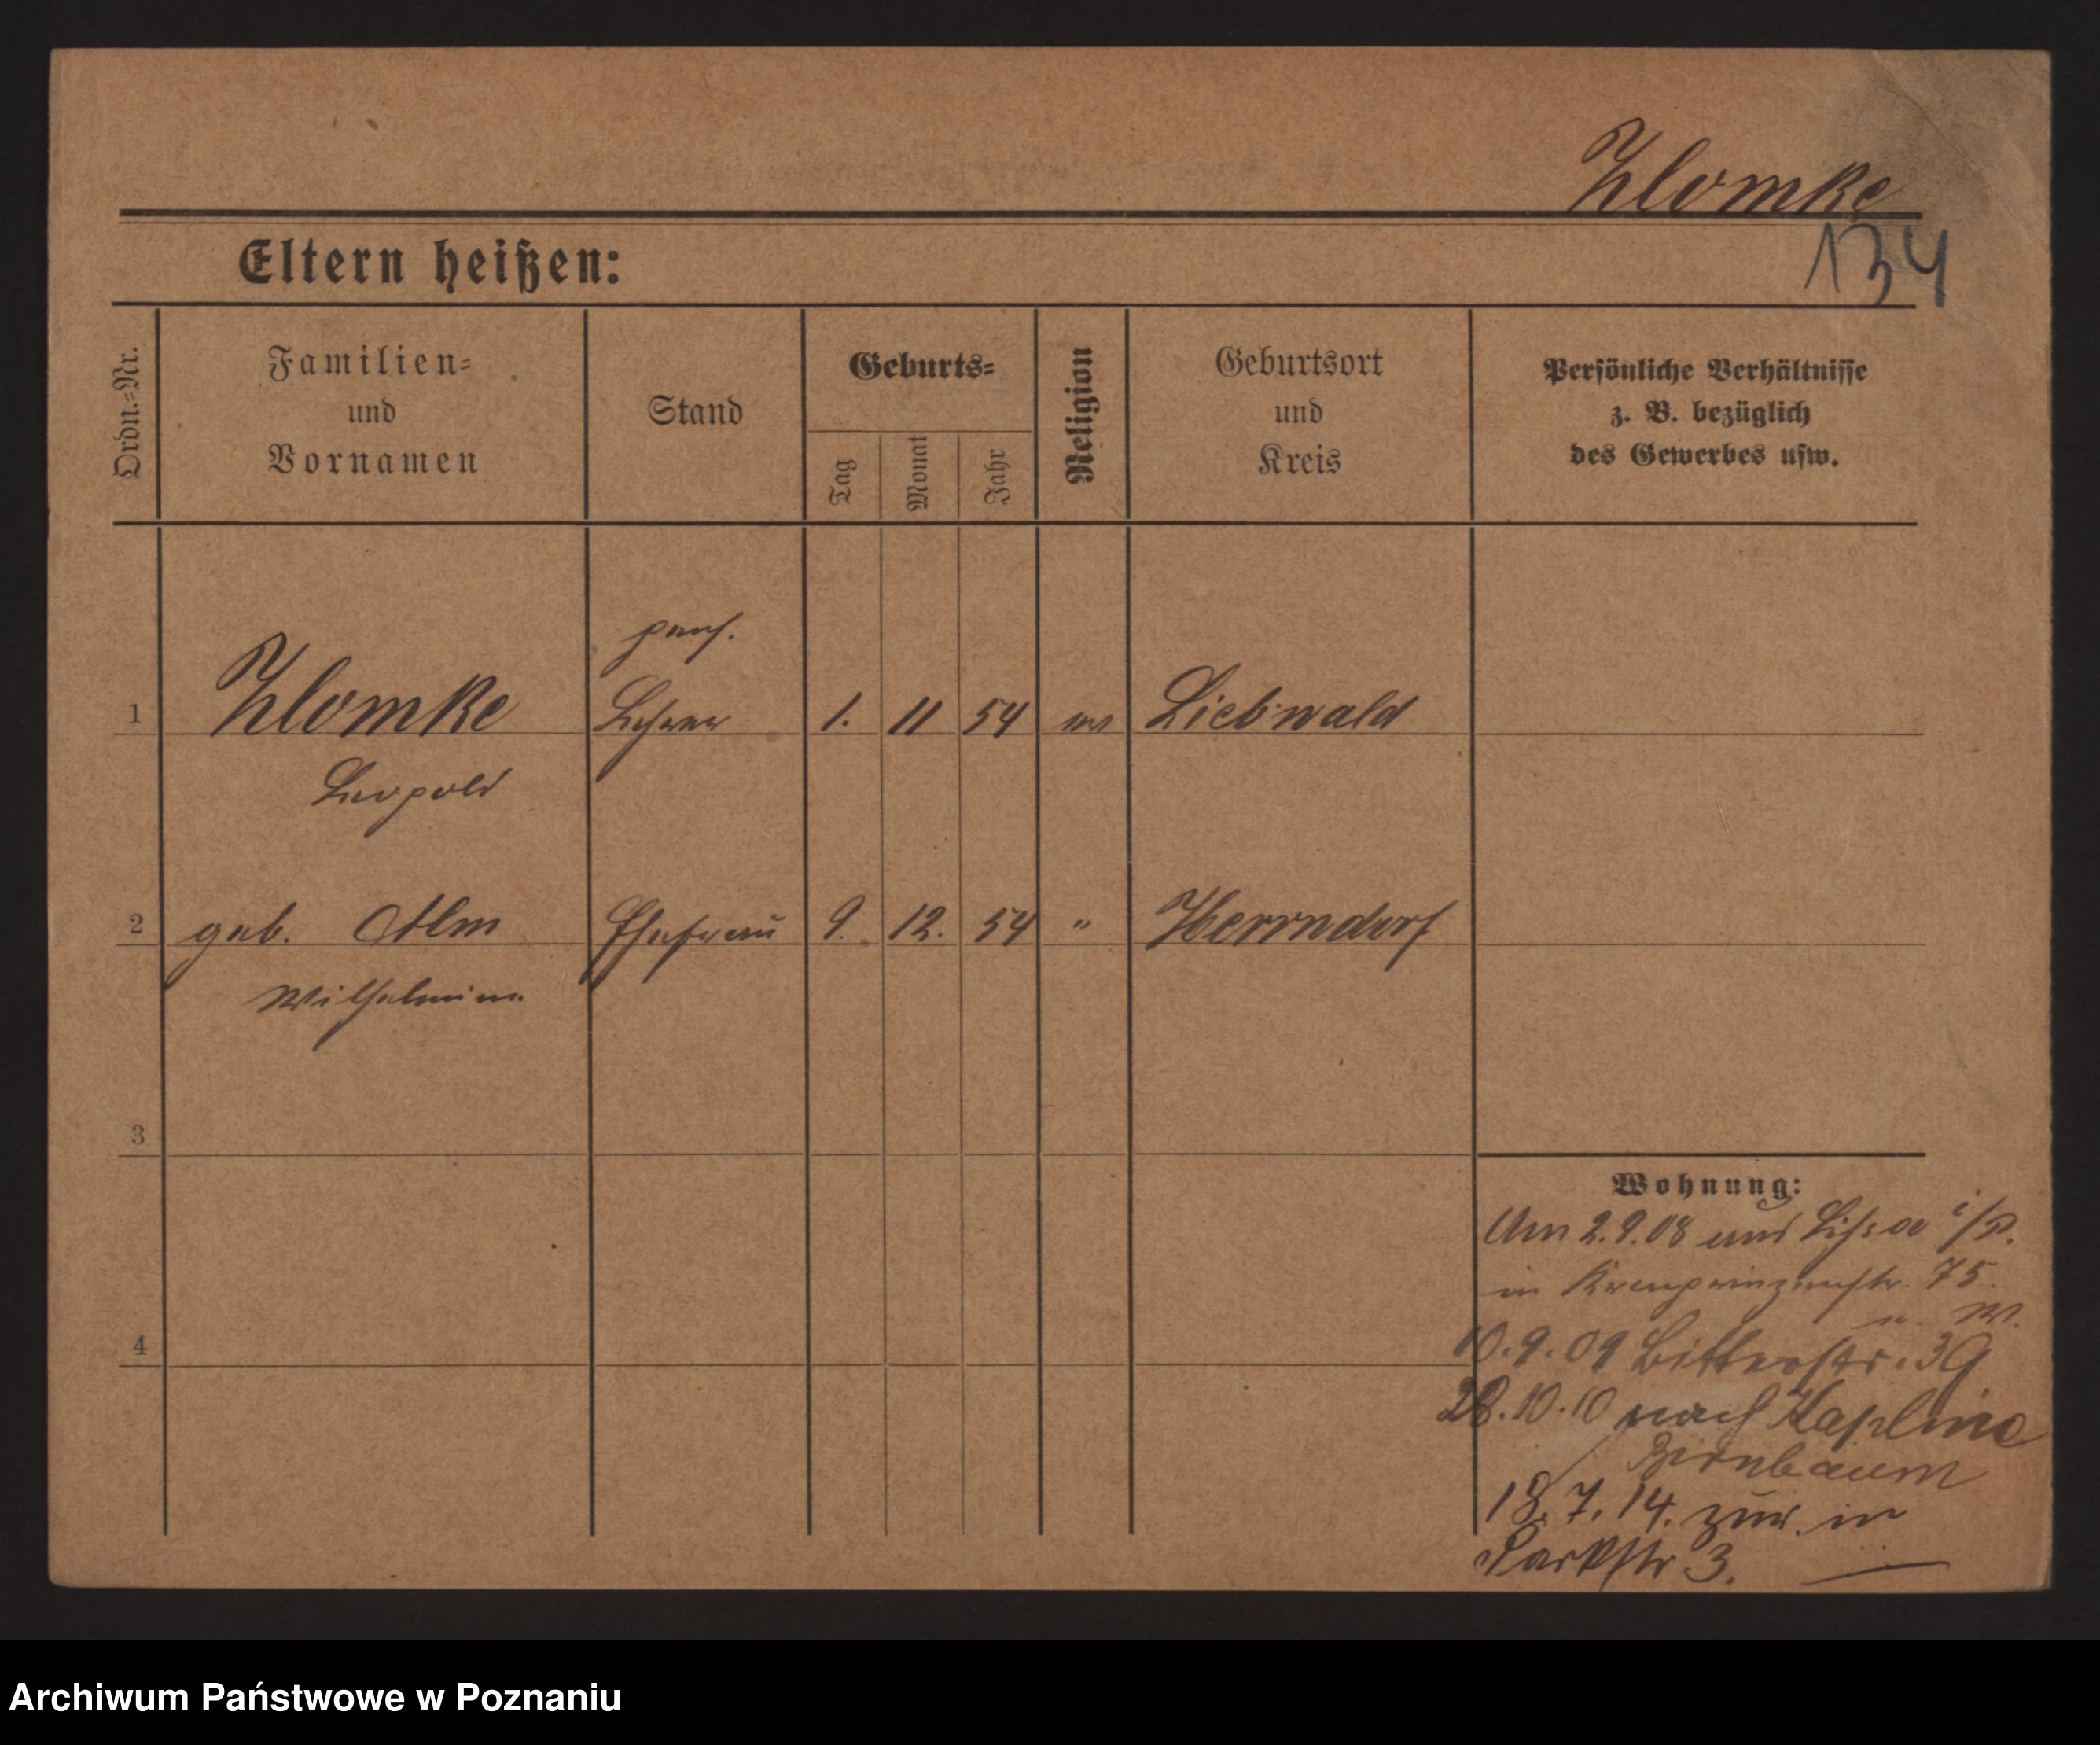 Zlomke
134
Eltern heißen:
Ordn.=Nr.
Familien=
und
Vornamen
Stand
Geburts=
Tag
Monat
Jahr
Religion
Geburtsort
und
Kreis
Persönliche Verhältnisse
z. B. bezüglich
des Gewerbes usw.
pens.
1 Zlomke Lehrer 1. 11 54 ev Liebwald
Leopold
2 geb. Alm Ehefrau 9. 12. 54 " Herrndorf
Wilhelmine
3
4
Wohnung:
Am 2.9.08 aus Lissa i/P.
in Kronprinzenstr. 75.
u. W.
10.9.09 Bitterstr. 39
28.10.10 nach Kapline
Birnbaum
18.7.14. zur. in
Parkstr 3.
Archiwum Państwowe w Poznaniu